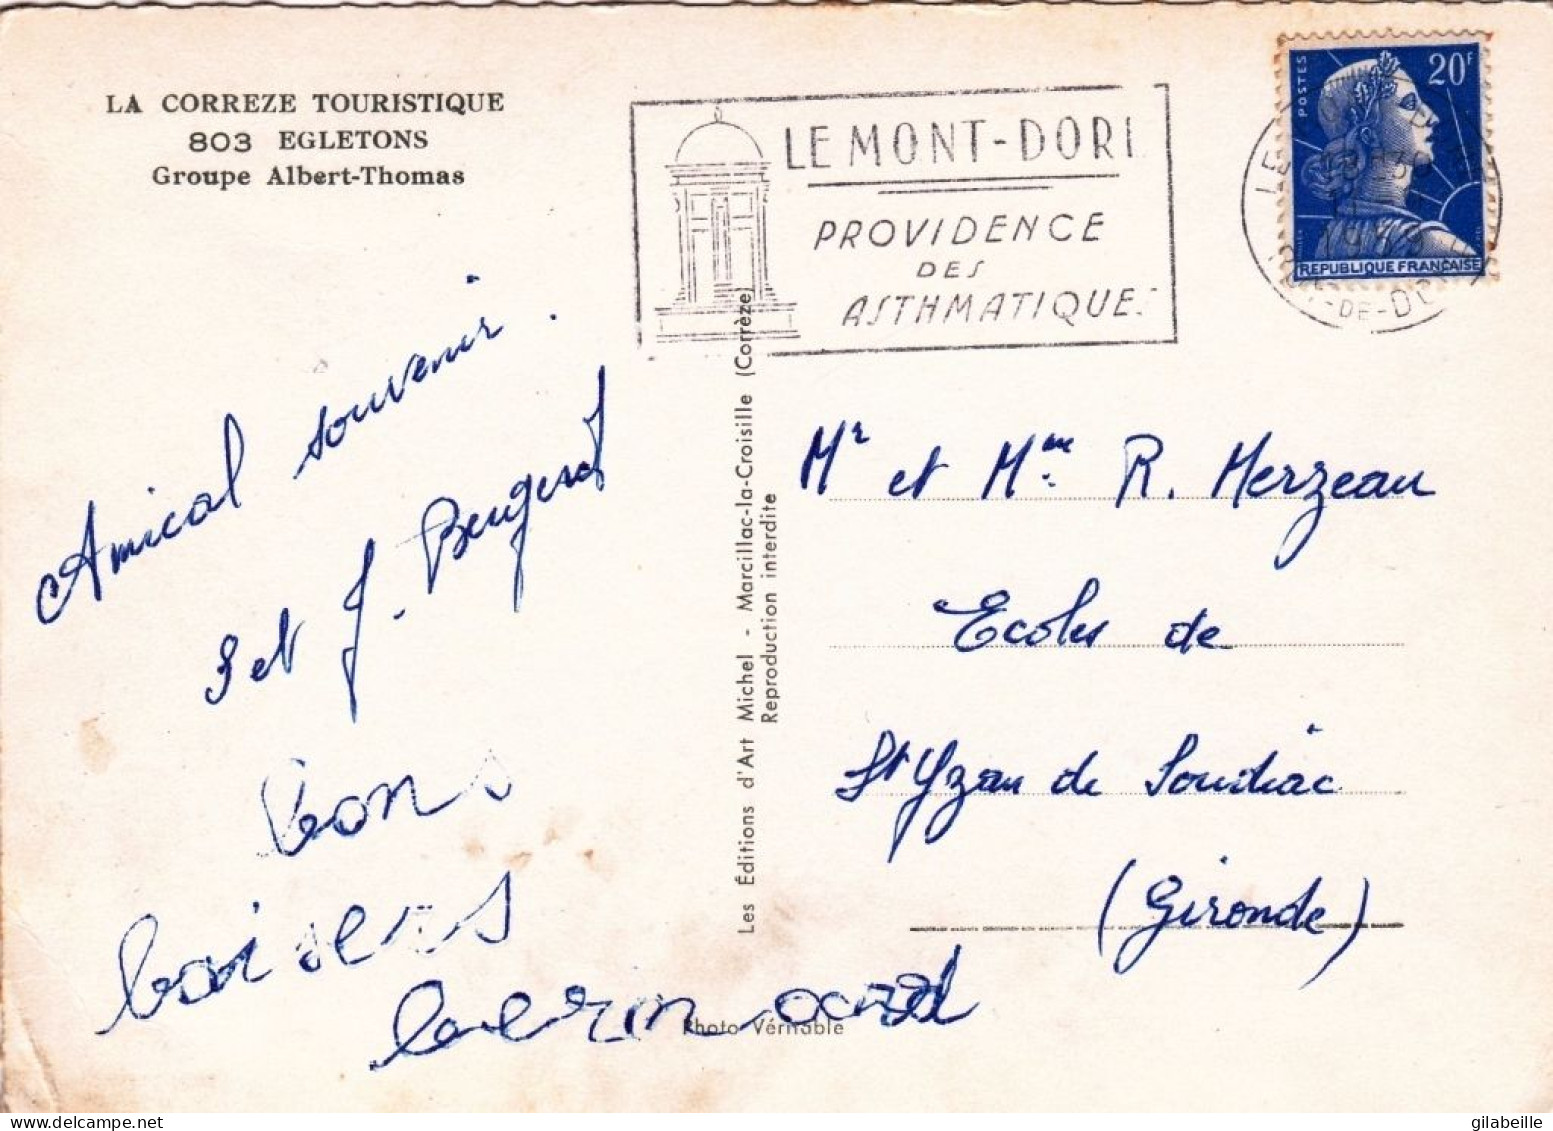 LA CORREZE TOURISTIQUE
803 EGLETONS
Groupe Albert-Thomas
LE MONT-DORE
PROVIDENCE
DES
ASTHMATIQUES
POSTES
20F
REPUBLIQUE FRANÇAISE
LE
18 H 30
1959
DE-DO
Amical souvenir.
S et J. Bengerot
bons
baisers
bernard
Les Éditions d'Art Michel - Marcillac-la-Croisille (Corrèze)
Reproduction interdite
Photo Vérnable
Mr et Mme R. Merzeau
Ecoles de
St Yzan de Soudiac
(Gironde)
www.delcampe.net
gilabeille